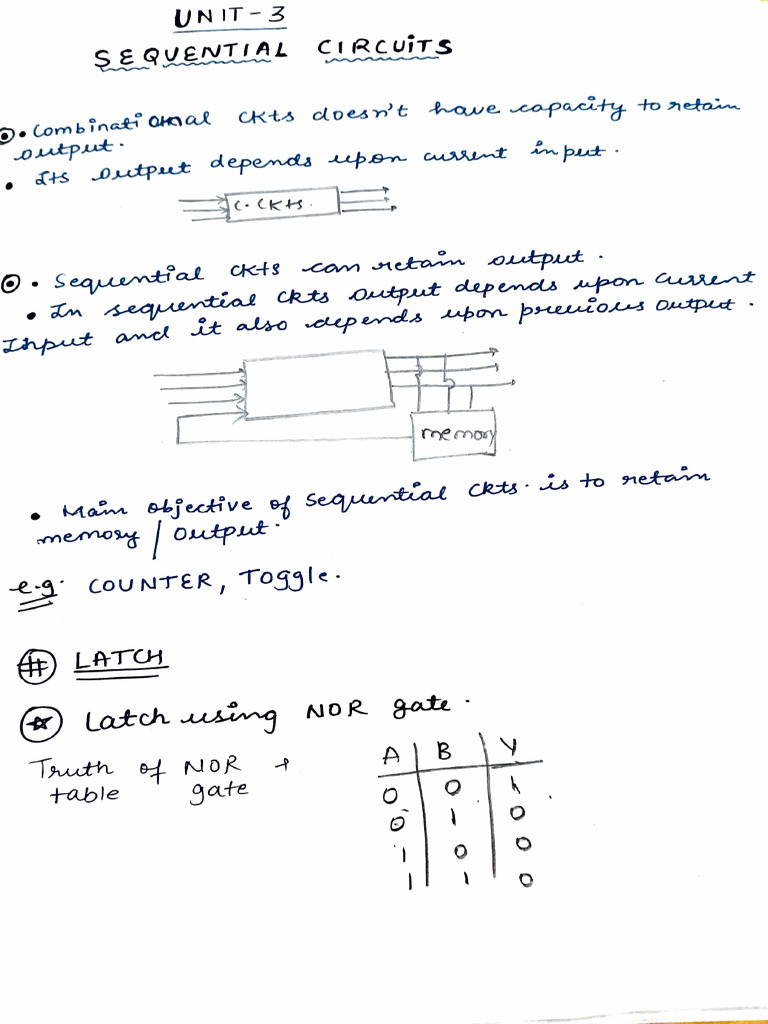 UNIT-3
SEQUENTIAL CIRCUITS
• Combinational ckts doesn't have capacity to retain
output.
• Its output depends upon current input.
C. CKts.
• Sequential ckts can retain output.
• In sequential ckts output depends upon current
Input and it also depends upon previous output.
memory
• Main objective of sequential ckts. is to retain
memory / output.
e.g. COUNTER, Toggle.
# LATCH
☆ Latch using NOR gate.
Truth of NOR
table gate
A B Y
0 0 1
0 1 0
1 0 0
1 1 0